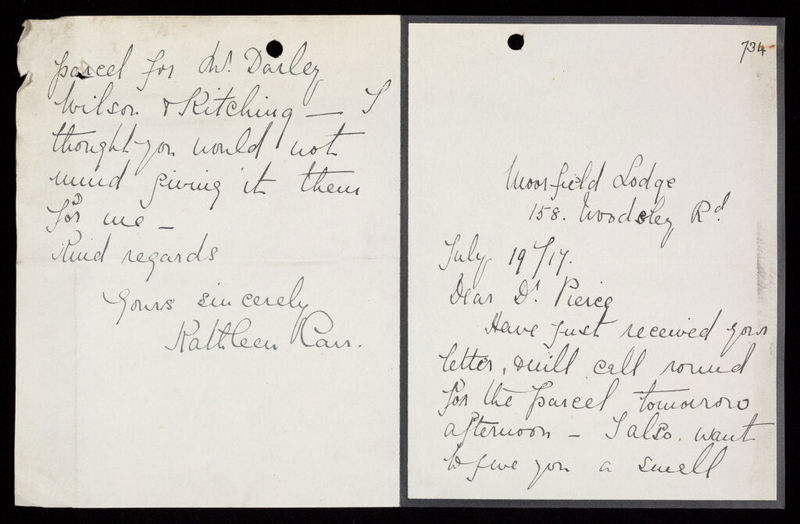 734
Moorfield Lodge
158. Woodsley Rd.
July 19/17.
Dear Dr. Pierce
Have just received your
letter, & will call round
for the parcel tomorrow
afternoon – I also want
to give you a small
parcel for Darley
Wilson & Kitching – I
thought you would not
mind giving it them
for me –
Kind regards
Yours sincerely
Kathleen Carr.